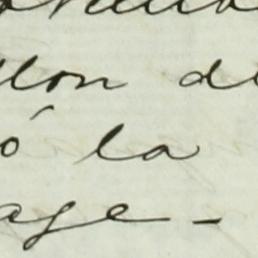 llon de
ó la
age-